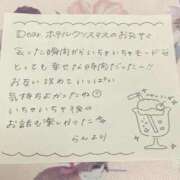 Dear. ホテルクリスマスのお兄さん
会った瞬間からいちゃいちゃモードで
とっても幸せな時間だったー!!
お互い攻めていっぱい
気持ちよかったね
いちゃいちゃ後の
お話も楽しかった
らんより